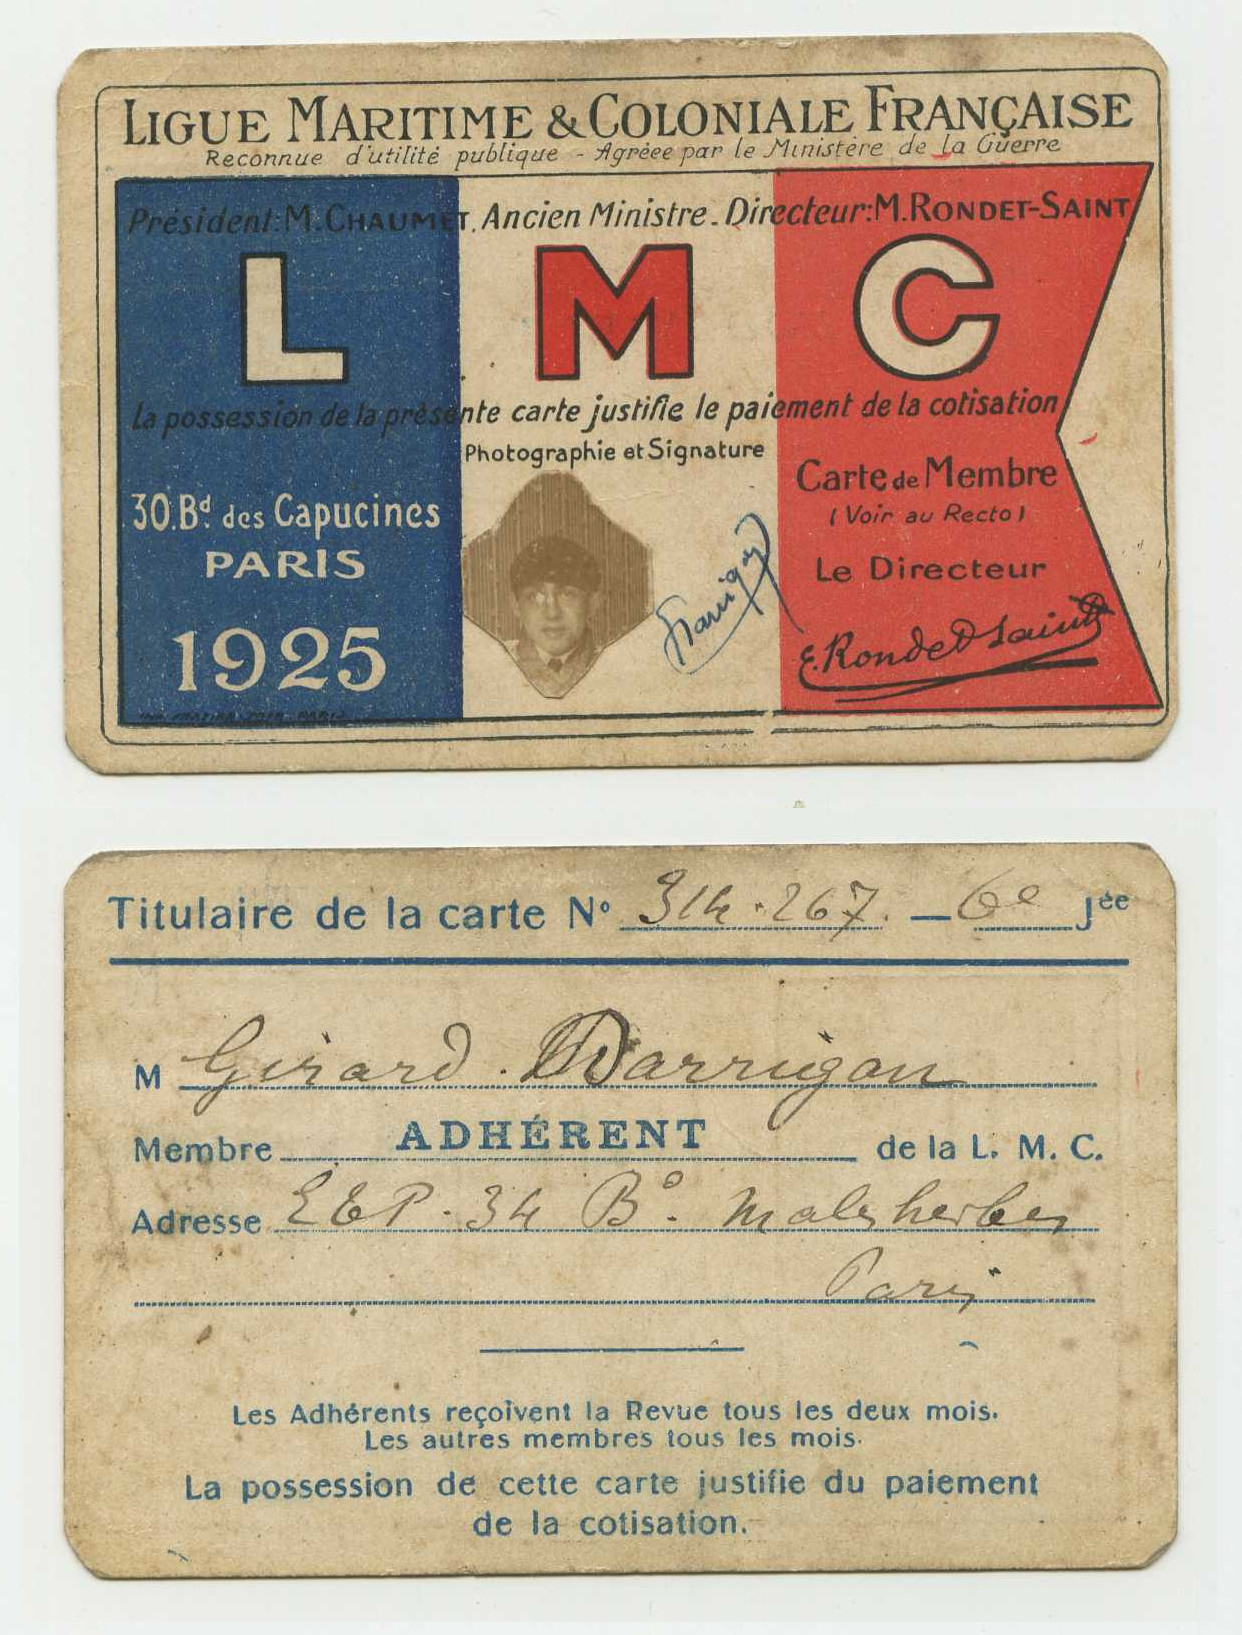 LIGUE MARITIME & COLONIALE FRANÇAISE
Reconnue d'utilité publique - Agréee par le Ministère de la Guerre
Président: M. CHAUMET. Ancien Ministre. Directeur: M. RONDET-SAINT
L M C
La possession de la présente carte justifie le paiement de la cotisation
Photographie et Signature
30. Bd. des Capucines
PARIS
1925
Carte de Membre
(Voir au Recto)
Le Directeur
E. Rondet Saint
Titulaire de la carte No 314.267. — 6e Jée
M Girard. Darrigan
Membre ADHÉRENT de la L. M. C.
Adresse 34 Bd. Malesherbes
Paris
Les Adhérents reçoivent la Revue tous les deux mois.
Les autres membres tous les mois.
La possession de cette carte justifie du paiement
de la cotisation.